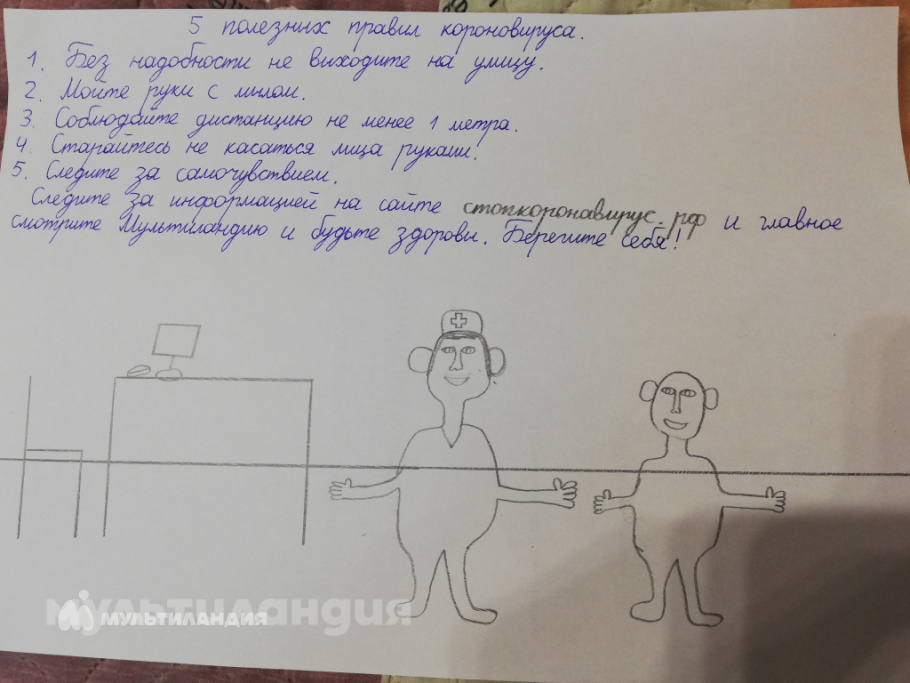 5 полезных правил короновируса.
1. Без надобности не выходите на улицу.
2. Мойте руки с мылом.
3. Соблюдайте дистанцию не менее 1 метра.
4. Старайтесь не касаться лица руками.
5. Следите за самочувствием.
Следите за информацией на сайте стопкоронавирус.рф и главное
смотрите Мультиландию и будьте здоровы. Берегите себя!
мультиландия
МУЛЬТИЛАНДИЯ